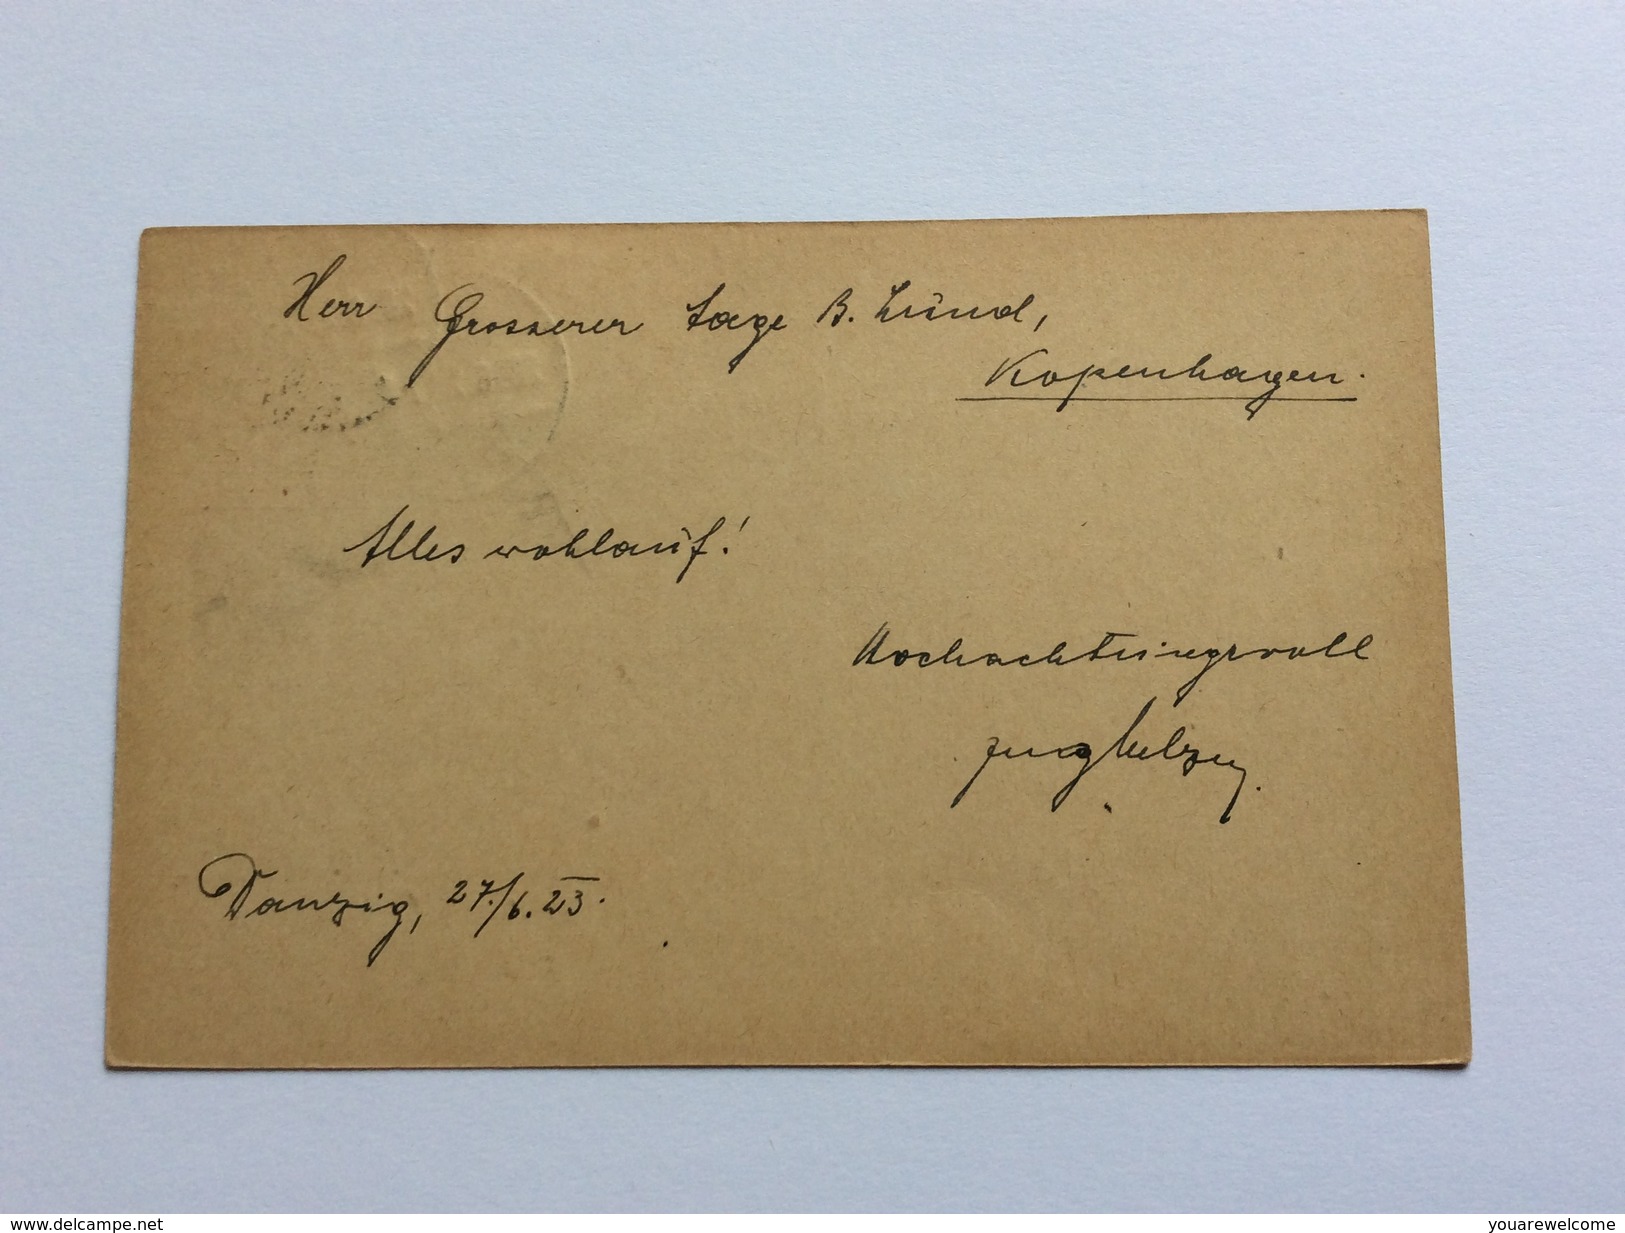 Herr Grosserer Aage B. Lund,
Kopenhagen.
Alles wohlauf!
Hochachtungsvoll
Danzig, 27./6.23.
www.delcampe.net
youarewelcome